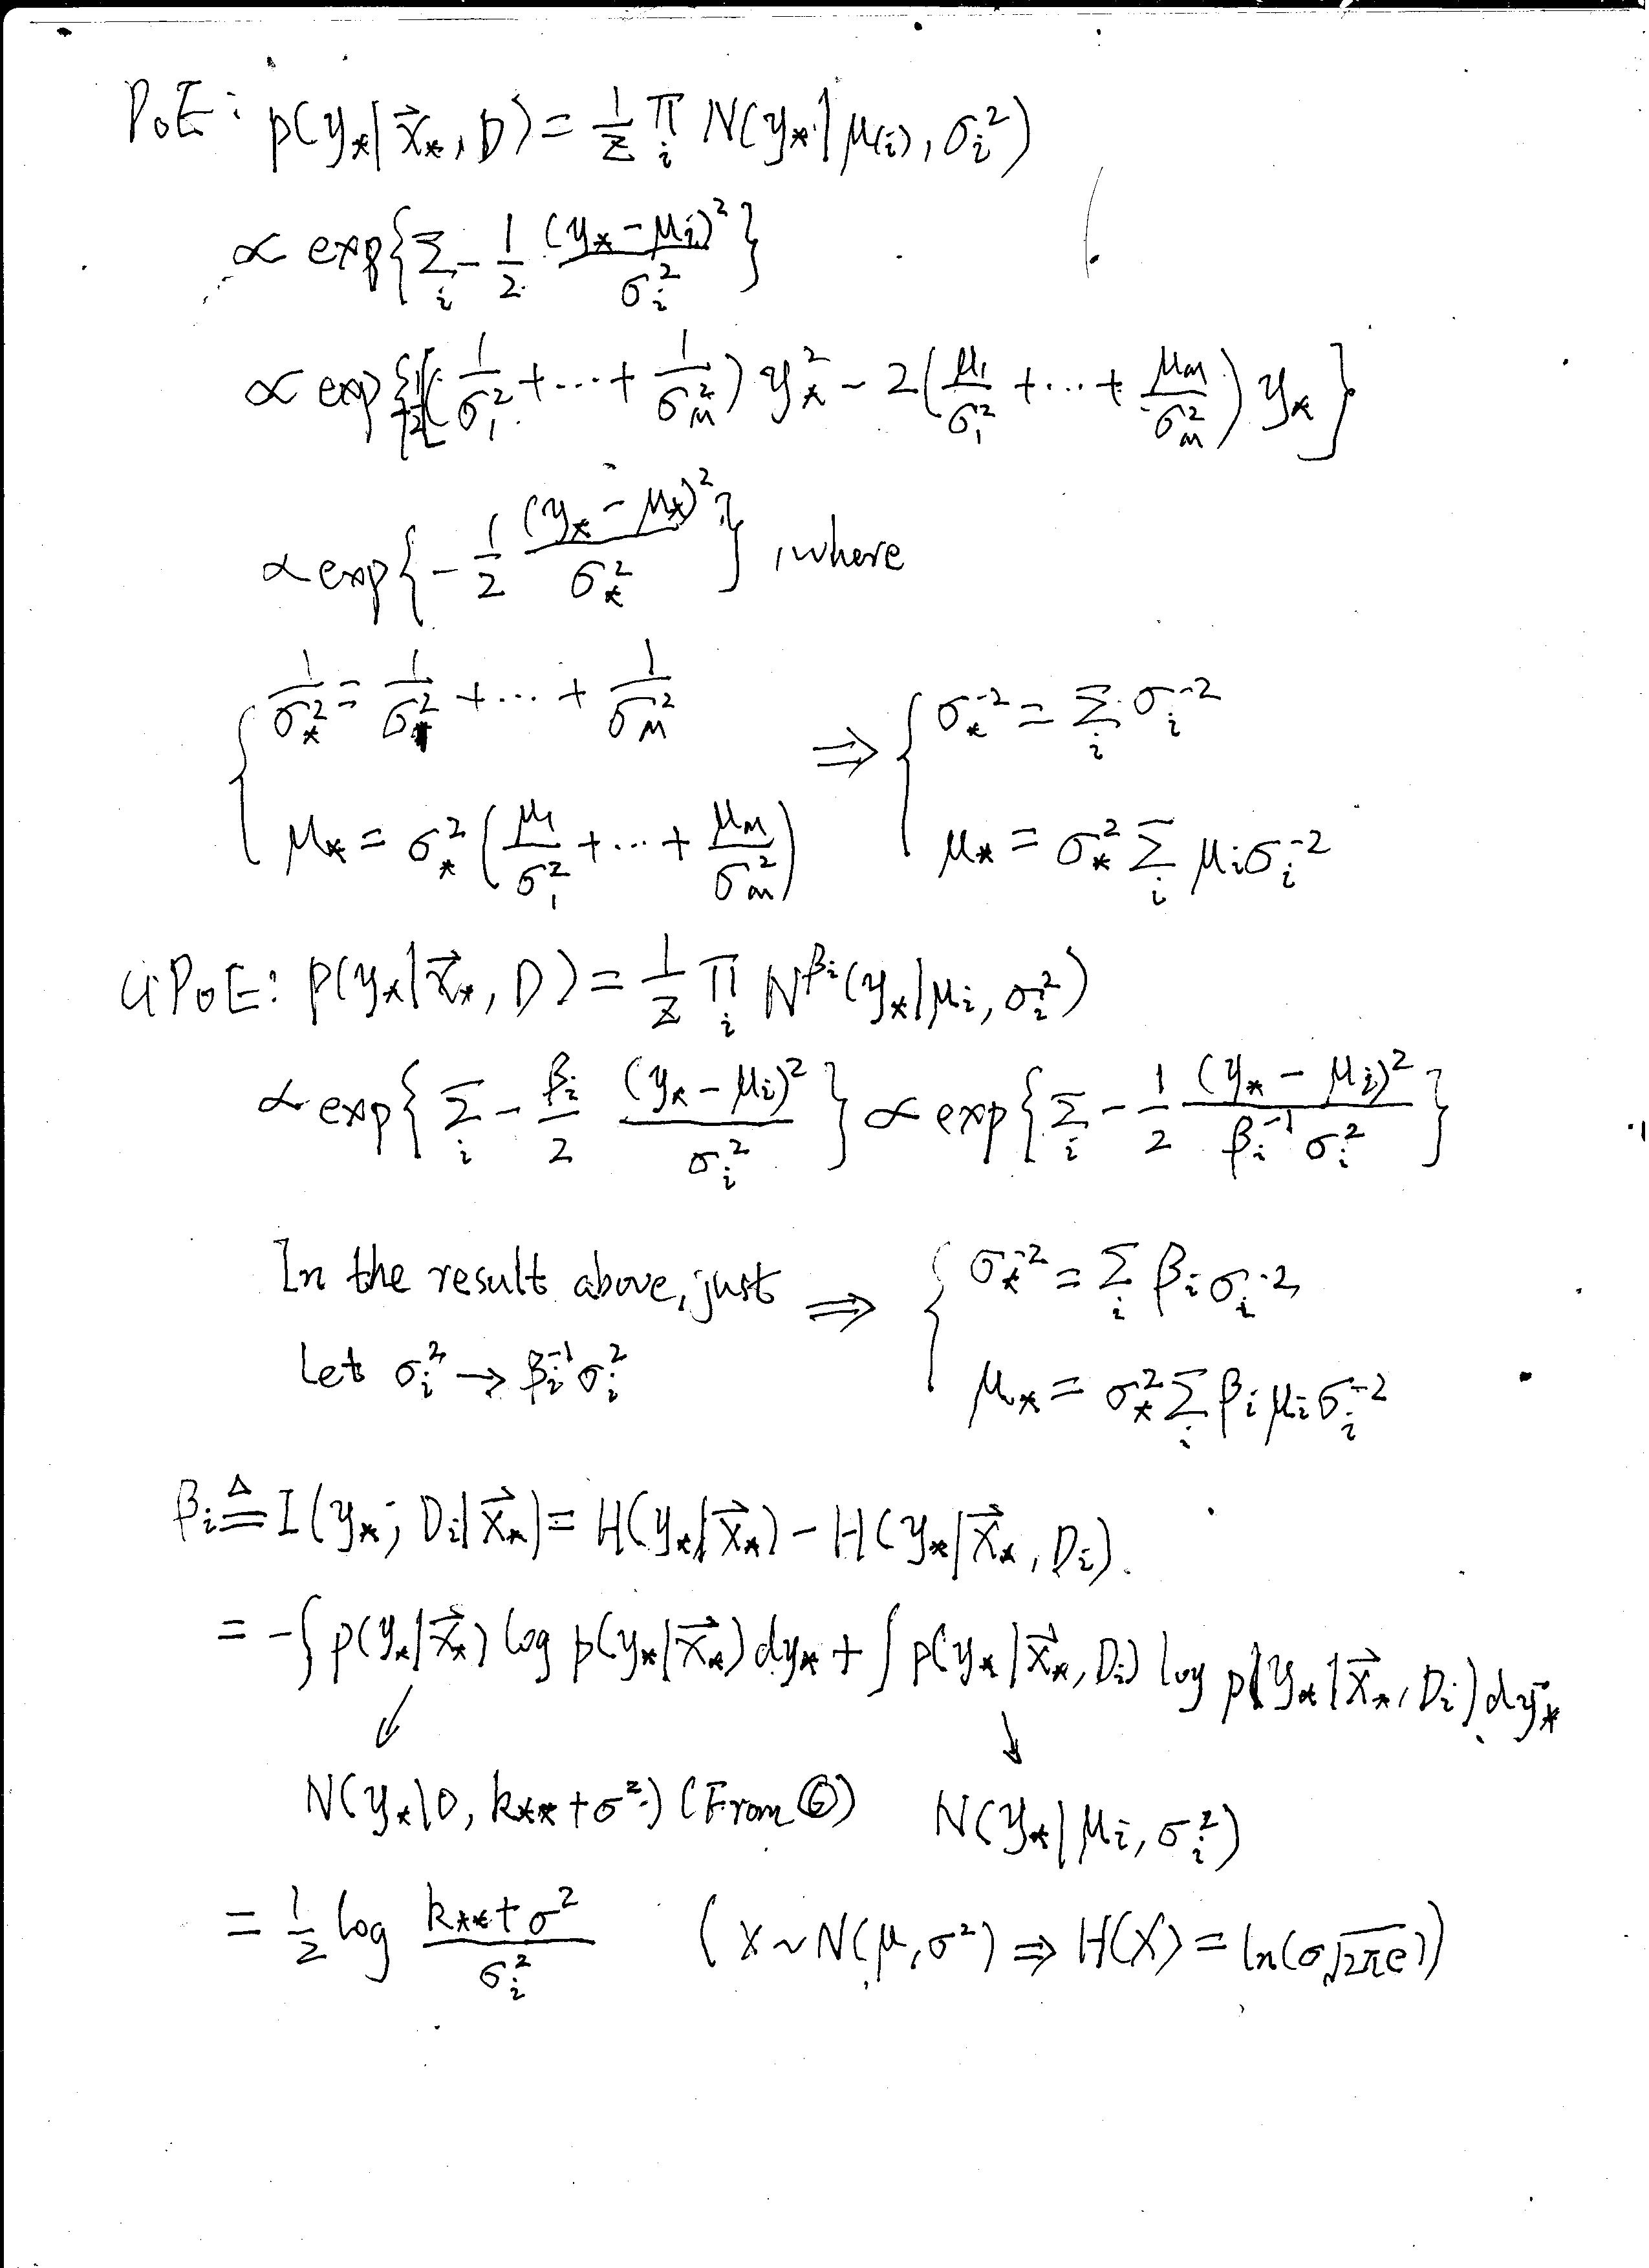 PoE: p(y_*|\vec{x}_*, D) = \frac{1}{Z} \prod_i N(y_*|μ(i), σ_i^2)
∝ exp{\sum_i -\frac{1}{2} \frac{(y_*-μ_i)^2}{σ_i^2}}
∝ exp{-\frac{1}{2}[(\frac{1}{σ_1^2}+...+\frac{1}{σ_M^2}) y_*^2 - 2(\frac{μ_1}{σ_1^2}+...+\frac{μ_M}{σ_M^2}) y_*]}
∝ exp{-\frac{1}{2} \frac{(y_*-μ_*)^2}{σ_*^2}}, where
{ \frac{1}{σ_*^2} = \frac{1}{σ_1^2}+...+\frac{1}{σ_M^2} ⇒ { σ_*^{-2} = \sum_i σ_i^{-2}
μ_* = σ_*^2 (\frac{μ_1}{σ_1^2}+...+\frac{μ_M}{σ_M^2}) μ_* = σ_*^2 \sum_i μ_i σ_i^{-2}
GPoE: p(y_*|\vec{x}_*, D) = \frac{1}{Z} \prod_i N^{β_i}(y_*|μ_i, σ_i^2)
∝ exp{\sum_i -\frac{β_i}{2} \frac{(y_*-μ_i)^2}{σ_i^2}} ∝ exp{\sum_i -\frac{1}{2} \frac{(y_*-μ_i)^2}{β_i^{-1} σ_i^2}}
In the result above, just ⇒ { σ_*^{-2} = \sum_i β_i σ_i^{-2}
Let σ_i^2 → β_i^{-1} σ_i^2 μ_* = σ_*^2 \sum_i β_i μ_i σ_i^{-2}
β_i ≜ I(y_*; D_i|\vec{x}_*) = H(y_*|\vec{x}_*) - H(y_*|\vec{x}_*, D_i).
= -∫ p(y_*|\vec{x}_*) log p(y_*|\vec{x}_*) dy_* + ∫ p(y_*|\vec{x}_*, D_i) log p(y_*|\vec{x}_*, D_i) dy_*
↙ ↓
N(y_*|0, k_{**}+σ^2) (From ⑥) N(y_*|μ_i, σ_i^2)
= \frac{1}{2} log \frac{k_{**}+σ^2}{σ_i^2} (X~N(μ, σ^2) ⇒ H(X) = ln(σ\sqrt{2πe}))